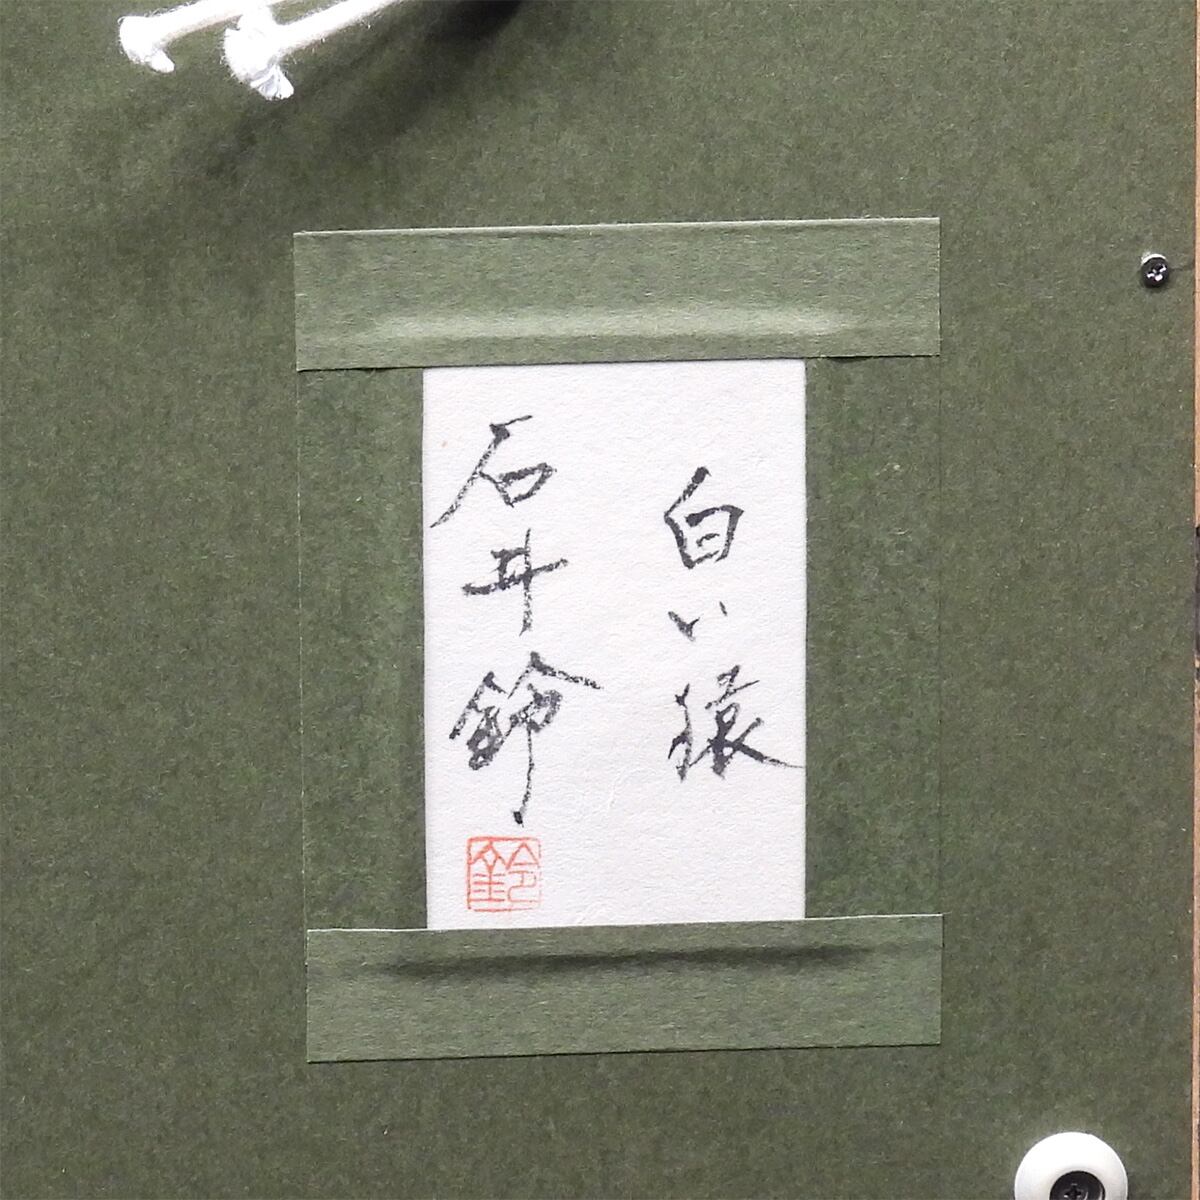 白い猿
石井鈴
鈴